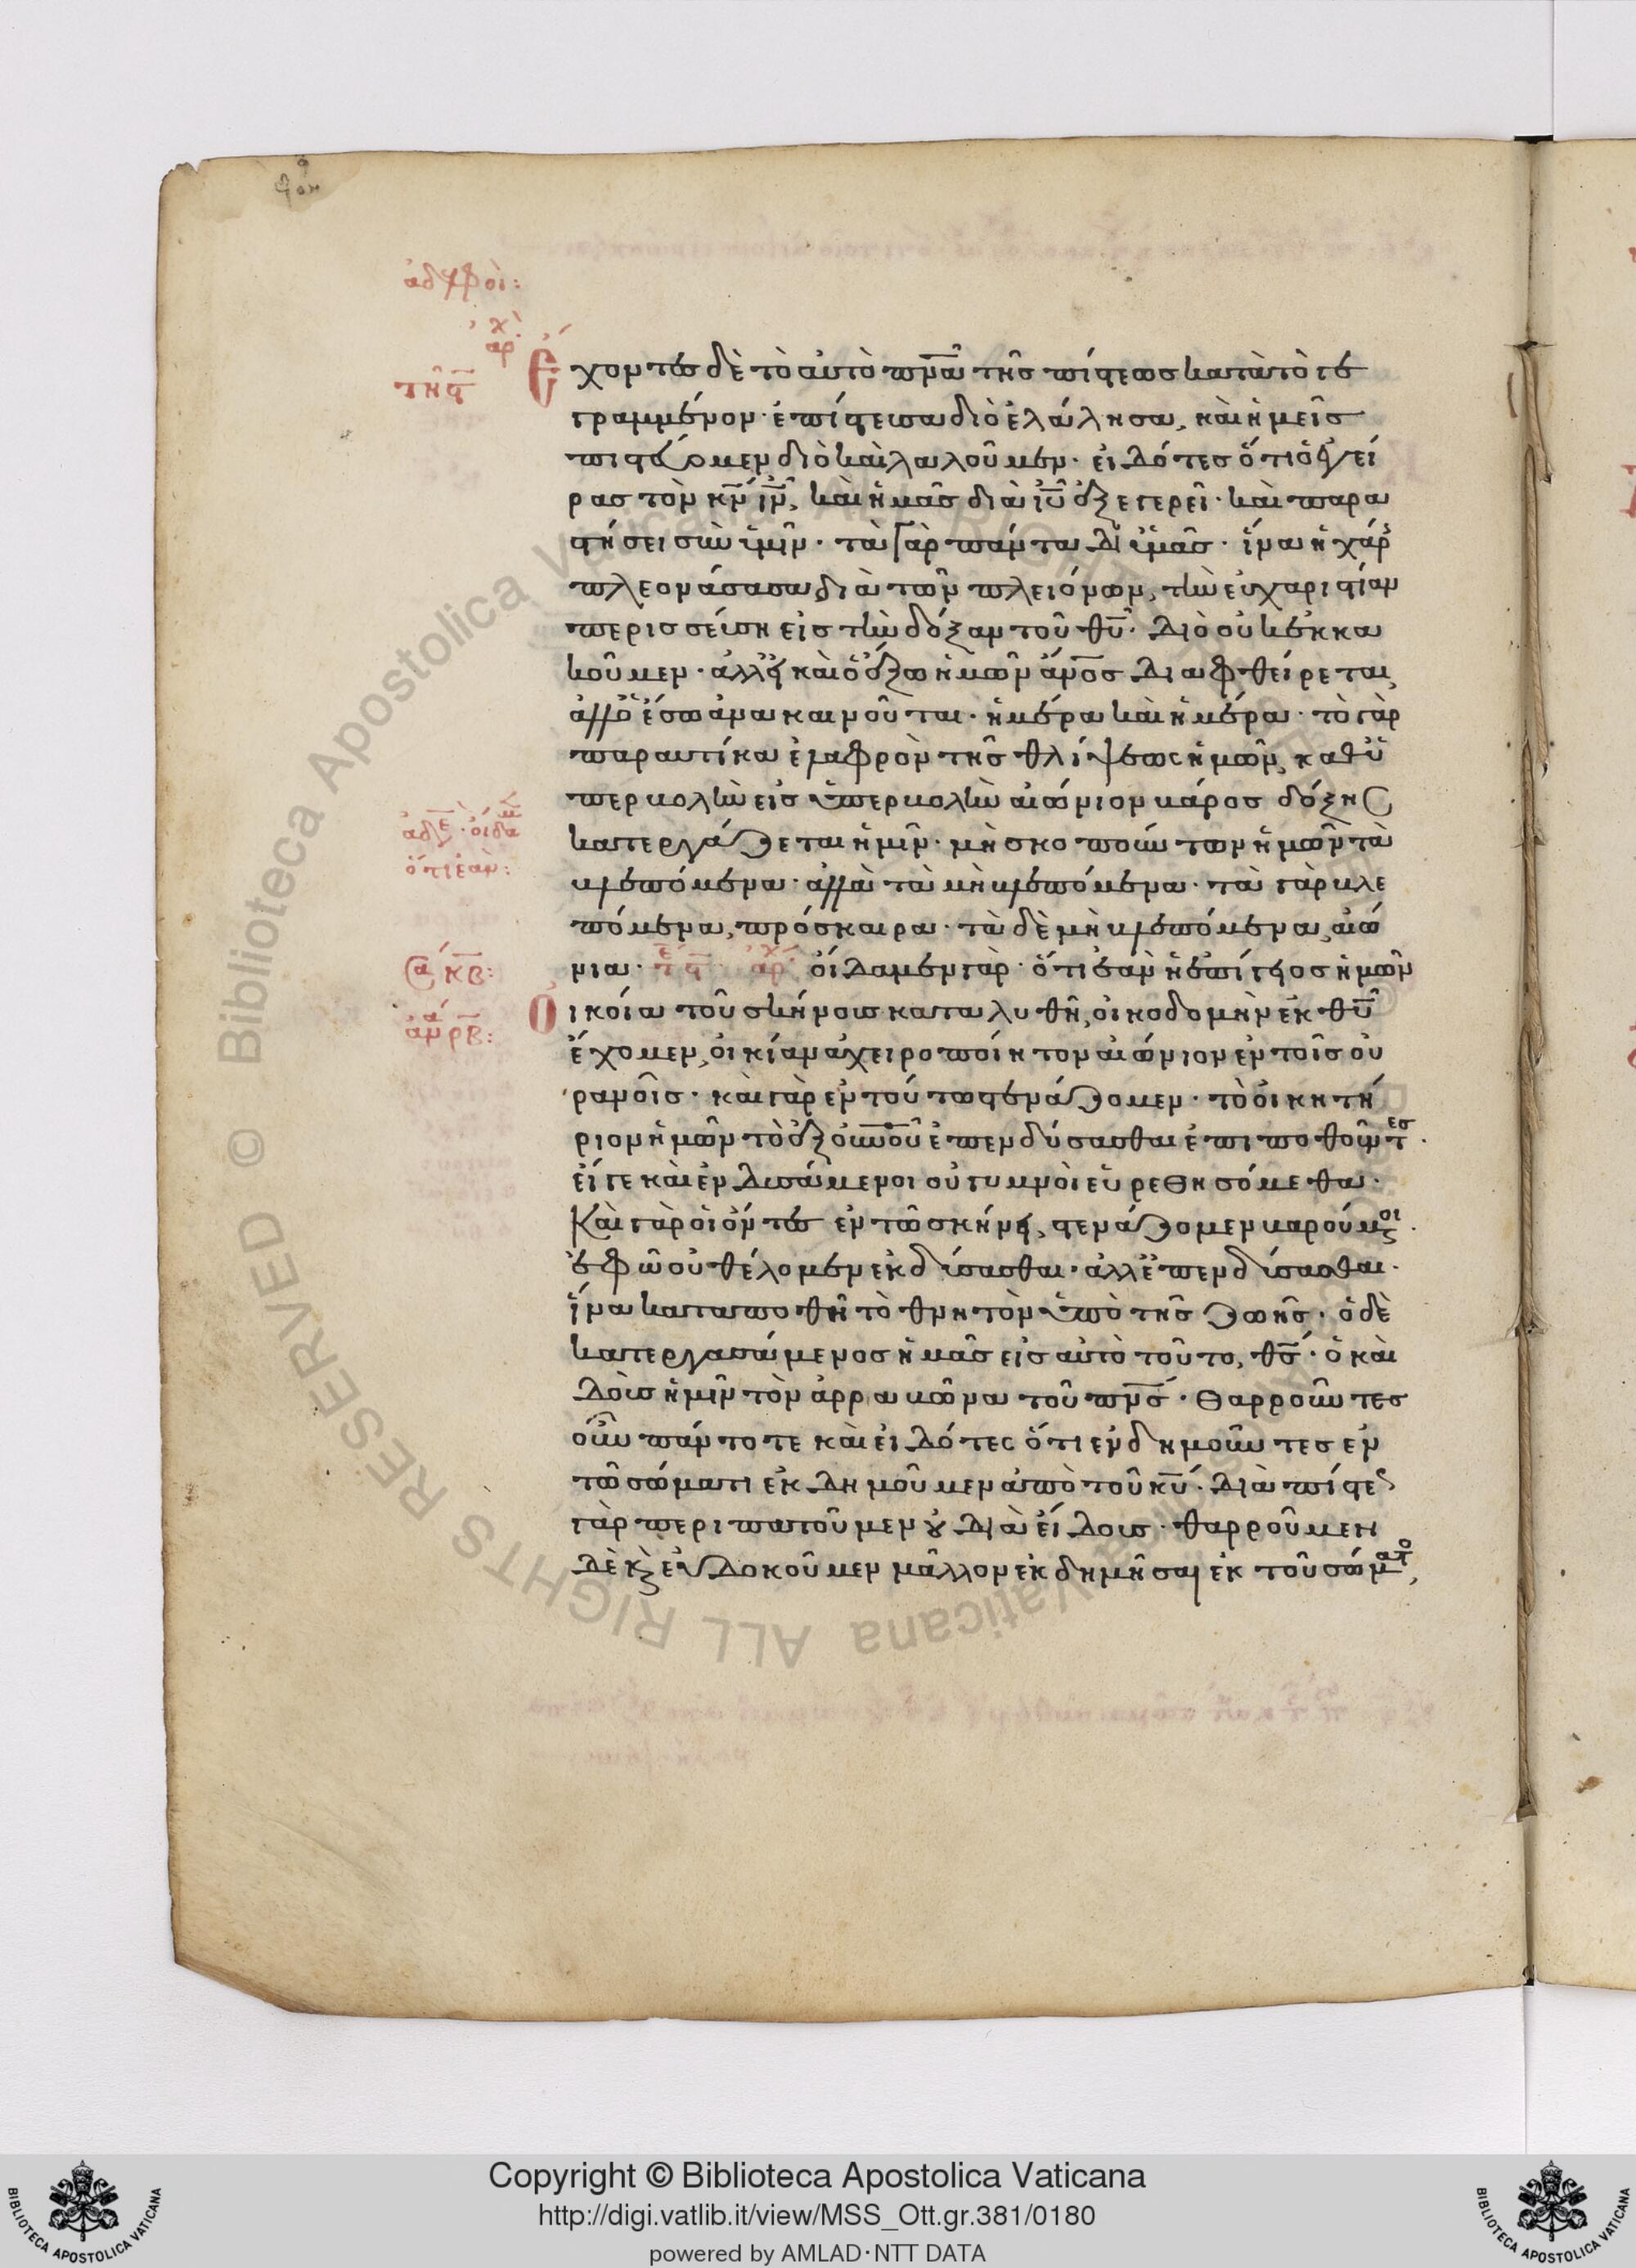 ἀδελφοὶ:
ἀρχ
τῆς
Ἔχοντες δὲ τὸ αὐτὸ πνᾶ τῆς πίστεως κατὰ τὸ γε
γραμμένον· ἐπίστευσα διὸ ἐλάλησα, καὶ ἡμεῖς
πιστεύομεν διὸ καὶ λαλοῦμεν· εἰδότες ὅτι ὁ ἐγεί
ρας τὸν κν ιν, καὶ ἡμᾶς διὰ ιυ ἐξεγερεῖ· καὶ παρα
στήσει σὺν ὑμῖν· τὰ γὰρ πάντα δι ὑμᾶς· ἵνα ἡ χάρ
πλεονάσασα διὰ τῶν πλειόνων, τὴν εὐχαριστίαν
περισσεύση εἰς τὴν δόξαν τοῦ θυ· διὸ οὐκ ἐκκα
κοῦμεν· ἀλλ εἰ καὶ ὁ ἔξω ἡμῶν ανος διαφθείρεται,
ἀλλ ὁ ἔσω ἀνακαινοῦται· ἡμέρα καὶ ἡμέρα· τὸ γὰρ
παραυτίκα ἐλαφρὸν τῆς θλίψεως ἡμῶν, καθ ὑ
περβολὴν εἰς ὑπερβολὴν αἰώνιον βάρος δόξης
κατεργάζεται ἡμῖν· μὴ σκοπούντων ἡμῶν τὰ
βλεπόμενα· ἀλλὰ τὰ μὴ βλεπόμενα· τὰ γὰρ βλε
πόμενα, πρόσκαιρα· τὰ δὲ μὴ βλεπόμενα, αἰώ
νια· ἀρχ οἴδαμεν γὰρ· ὅτι ἐὰν ἡ ἐπίγειος ἡμῶν
οἰκία τοῦ σκήνους καταλυθῆ, οἰκοδομὴν ἐκ θυ
ἔχομεν, οἰκίαν ἀχειροποίητον αἰώνιον ἐν τοῖς οὐ
ρανοῖς· καὶ γὰρ ἐν τούτω στενάζομεν· τὸ οἰκητή
ριον ἡμῶν τὸ ἐξ οὐνοῦ ἐπενδύσασθαι ἐπιποθοῦντες·
εἴγε καὶ ἐνδυσάμενοι οὐ γυμνοὶ εὑρεθησόμεθα·
Καὶ γὰρ οἱ ὄντες ἐν τῶ σκήνει, στενάζομεν βαρούμενοι·
ἐφ ὧ οὐ θέλομεν ἐκδύσασθαι· ἀλλ ἐπενδύσασθαι·
ἵνα καταποθῆ τὸ θνητὸν ὑπὸ τῆς ζωῆς· ὁ δὲ
κατεργασάμενος ἡμᾶς εἰς αὐτὸ τοῦτο, θς· ὁ καὶ
δοὺς ἡμῖν τὸν ἀρραβῶνα τοῦ πνς· θαρροῦντες
οὖν πάντοτε καὶ εἰδότες ὅτι ἐνδημοῦντες ἐν
τῶ σώματι ἐκδημοῦμεν ἀπὸ τοῦ κυ· διὰ πίστε
γὰρ περιπατοῦμεν οὐ διὰ εἴδους· θαρροῦμεν
δὲ καὶ εὐδοκοῦμεν μᾶλλον ἐκδημῆσαι ἐκ τοῦ σώματο,
ὅτι ἐὰν:
κβ:
Biblioteca Apostolica Vaticana ALL RIGHTS RESERVED ©
Copyright © Biblioteca Apostolica Vaticana
http://digi.vatlib.it/view/MSS_Ott.gr.381/0180
powered by AMLAD·NTT DATA
BIBLIOTECA APOSTOLICA VATICANA
BIBLIOTECA APOSTOLICA VATICANA